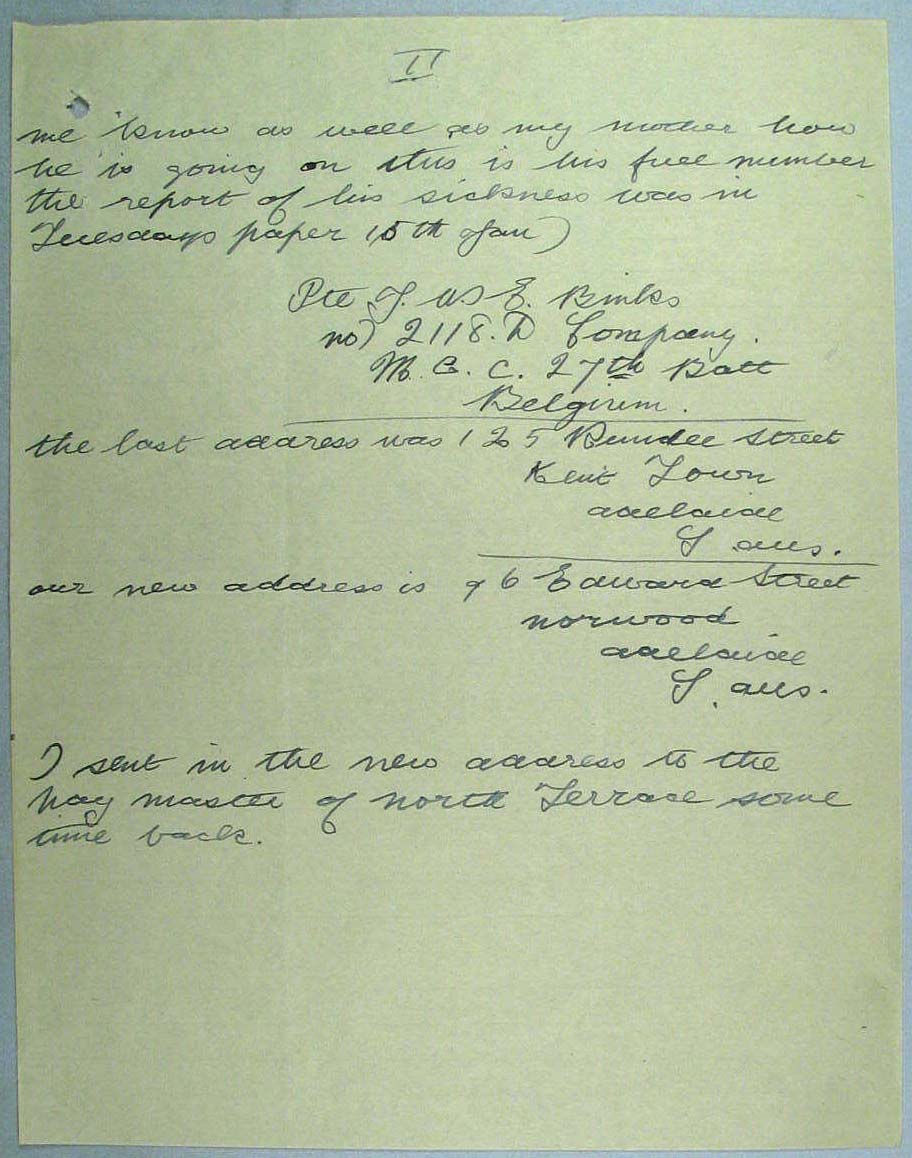 II
me know as well as my mother how
he is going on this is his full number
the report of his sickness was in
Tuesdays paper 15th of Jan)
Pte J. W E. Binks
no) 2118. D Company.
M. G. C. 27th Batt
Belgium.
the last address was 125 Dundee Street
Kent Town
adelaide
S aus.
our new address is 96 Edward Street
norwood
adelaide
S. aus.
I sent in the new address to the
pay master of north Terrace some
time back.